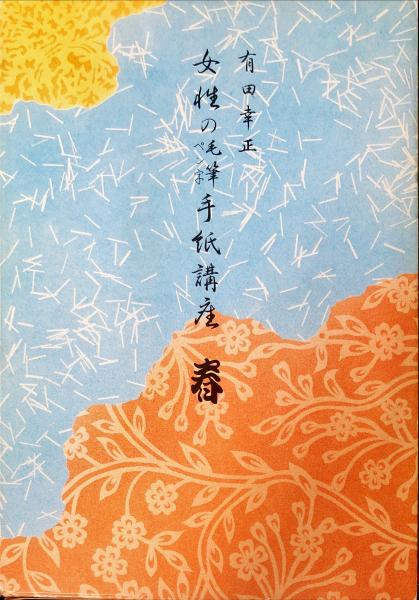 有田幸正
女性の毛筆ペン字手紙講座 春